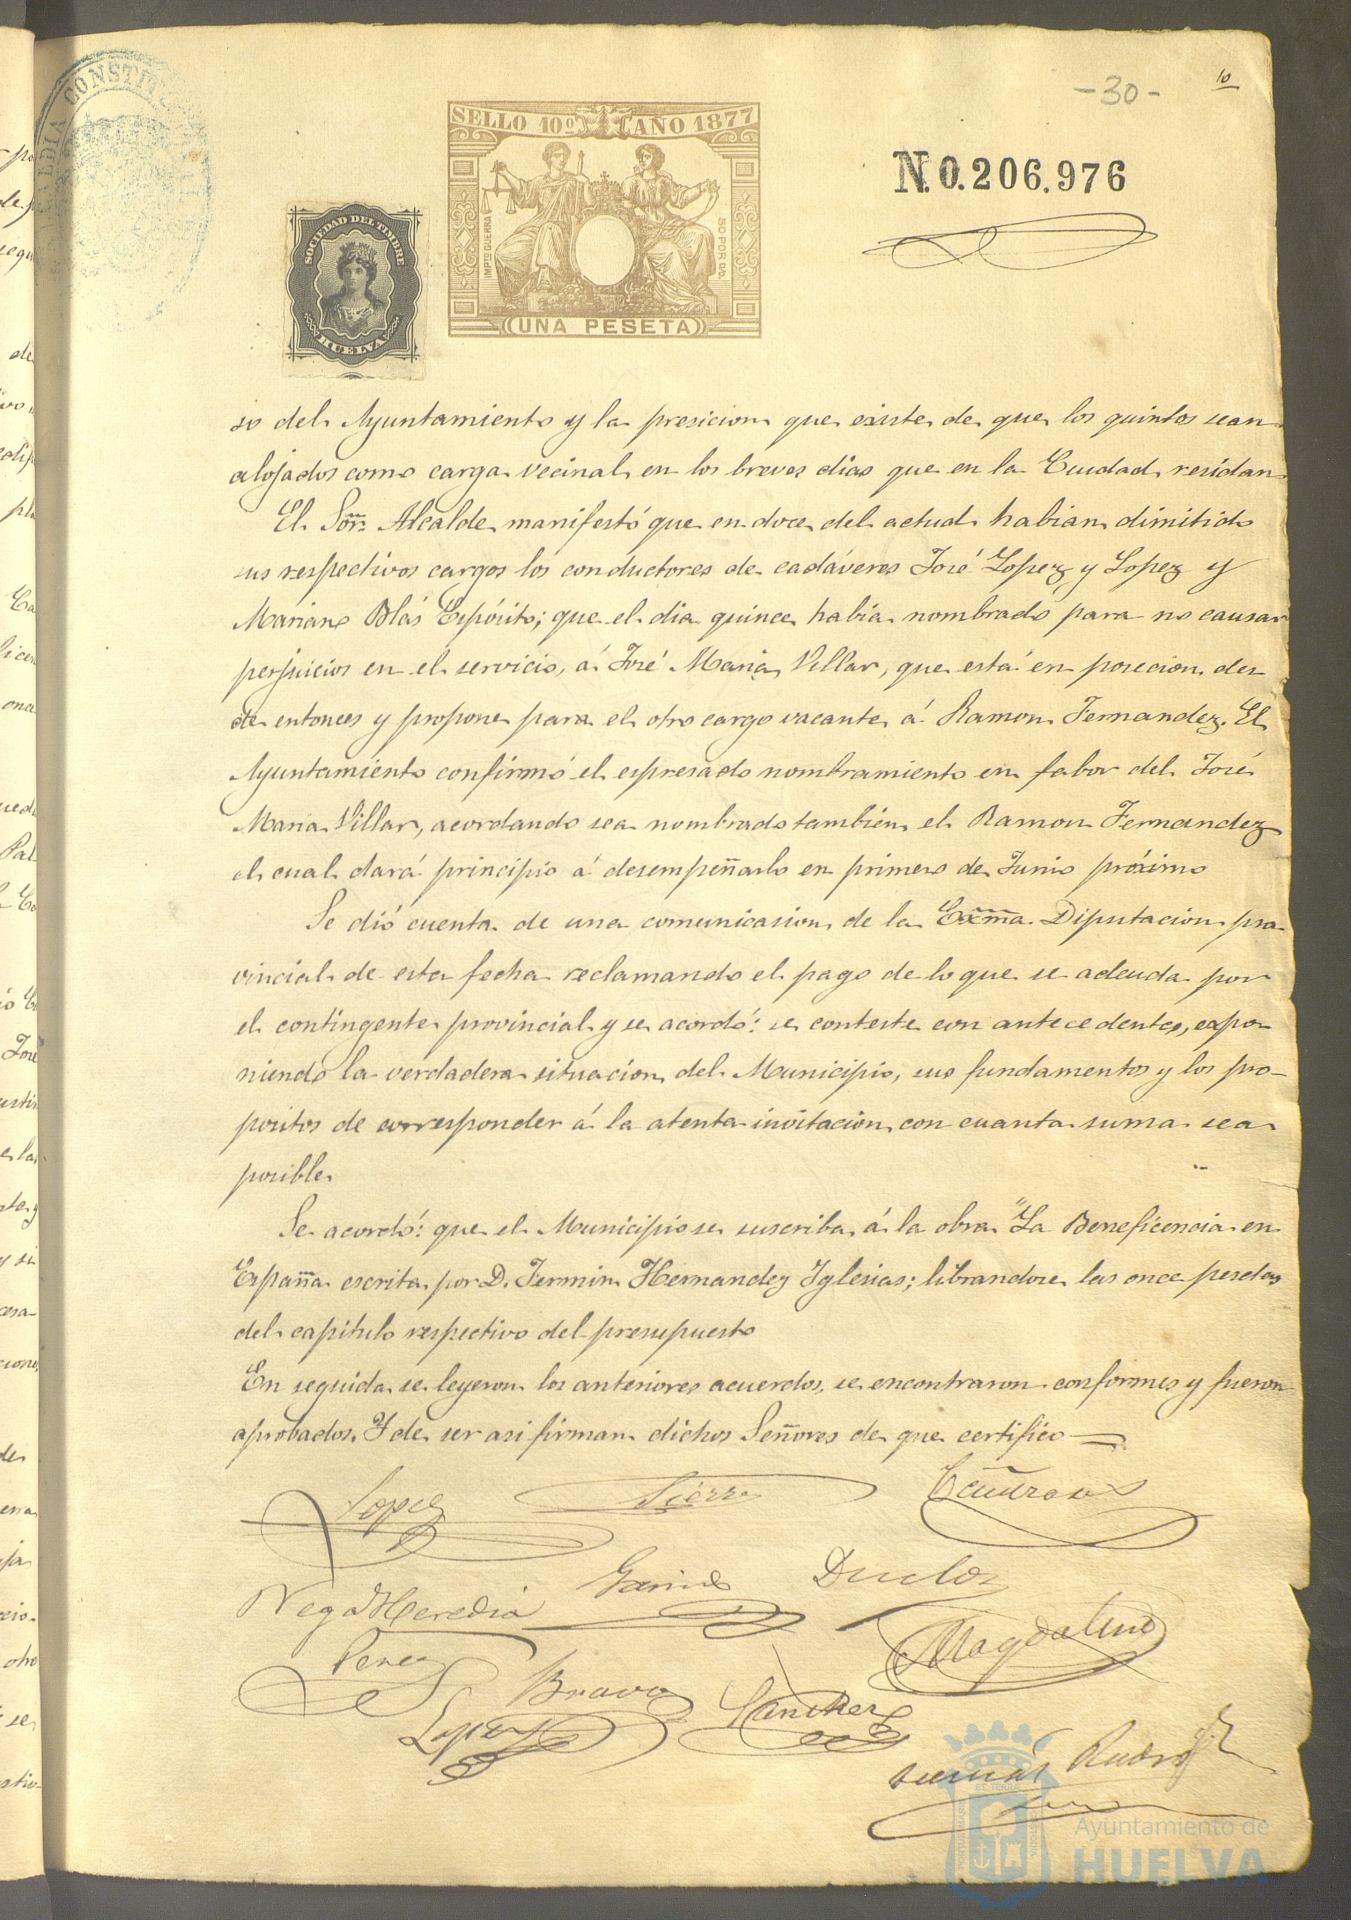 -30-
10
ALCALDIA CONSTITUCIONAL
SELLO 10º AÑO 1877
IMPTO GUERRA
50 POR 00.
UNA PESETA
N. 0.206.976
SOCIEDAD DEL TIMBRE
HUELVA
so del Ayuntamiento y la presicion que existe de que los quintos sean
alojados como carga vecinal en los breves dias que en la Ciudad residan
El Soñr. Alcalde manifestó que en doce del actual habian dimitido
sus respectivos cargos los conductores de cadáveres José Lopez y Lopez y
Mariano Blás Espósito; que el dia quince habia nombrado para no causar
perjuicios en el servicio, á José Maria Villar, que está en posecion des
de entonces y propone para el otro cargo vacante á Ramon Fernandez. El
Ayuntamiento confirmó el espresado nombramiento en fabor del José
Maria Villar, acordando sea nombrado tambien el Ramon Fernandez
el cual dará principio á desempeñarlo en primero de Junio próximo
Se dió cuenta de una comunicasion de la Exmña. Diputacion pro
vincial de esta fecha reclamando el pago de lo que se adeuda por
el contingente provincial y se acordó: se conteste con antecedentes, expo-
niendo la verdadera situacion del Municipio, sus fundamentos y los pro-
positos de corresponder á la atenta invitacion con cuanta suma sea
posible
Se acordó: que el Municipio se suscriba á la obra "La Beneficencia en
España escrita por D. Fermin Hernandez Yglesias; librandose las once pesetas
del capitulo respectivo del presupuesto
En seguida se leyeron los anteriores acuerdos, se encontraron conformes y fueron
aprobados. Y de ser asi firman dichos Señores de que certifico
Lopez Sierra
Vega Heredia Garrido Duclos
Perez Bravo Sanchez Magdaleno
Lopez
Ayuntamiento de
HUELVA